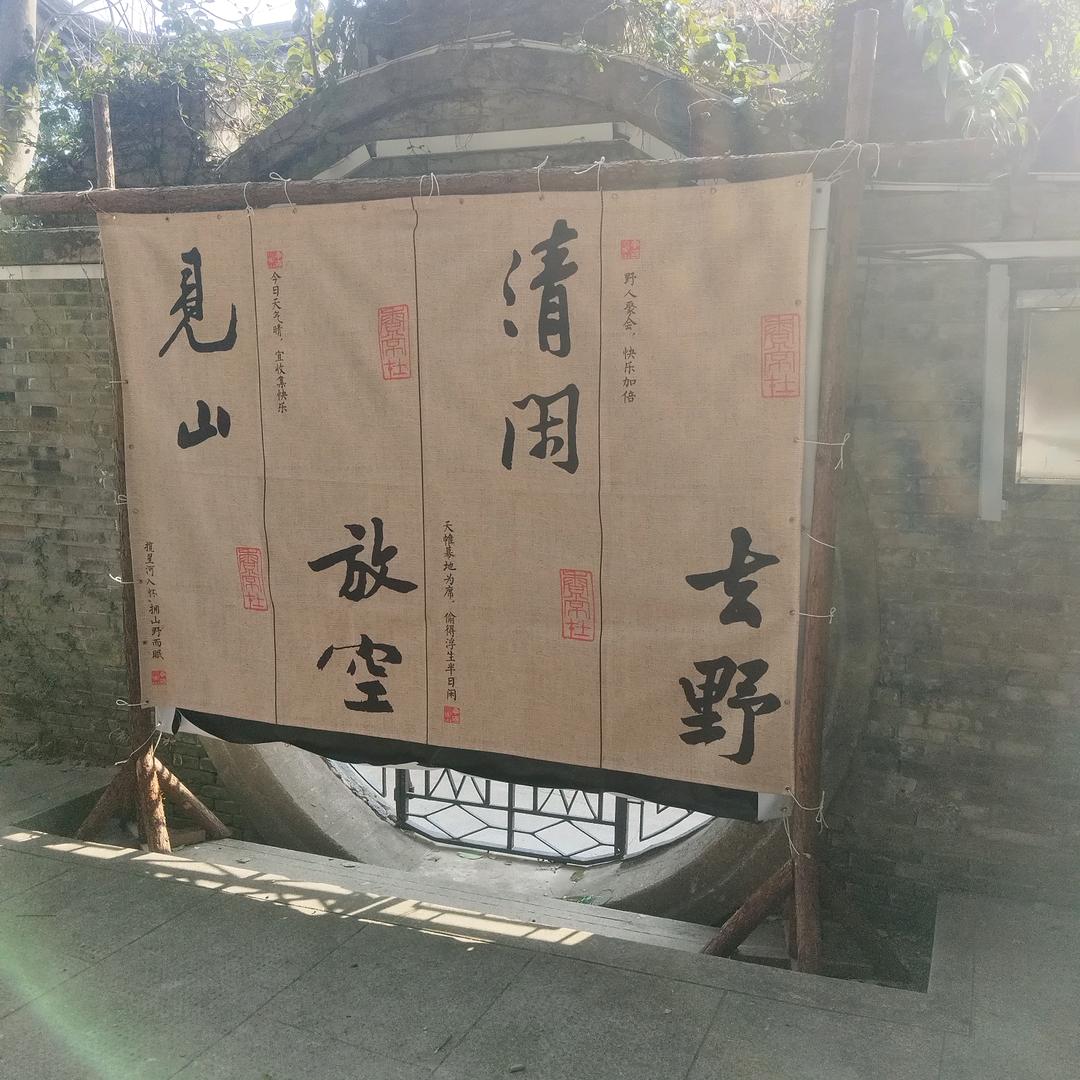 去野
野人聚会，快乐加倍
清闲
天帷幕地为席，偷得浮生半日闲
放空
今日天气晴，宜收集快乐
見山
揽星河入怀，拥山野而眠